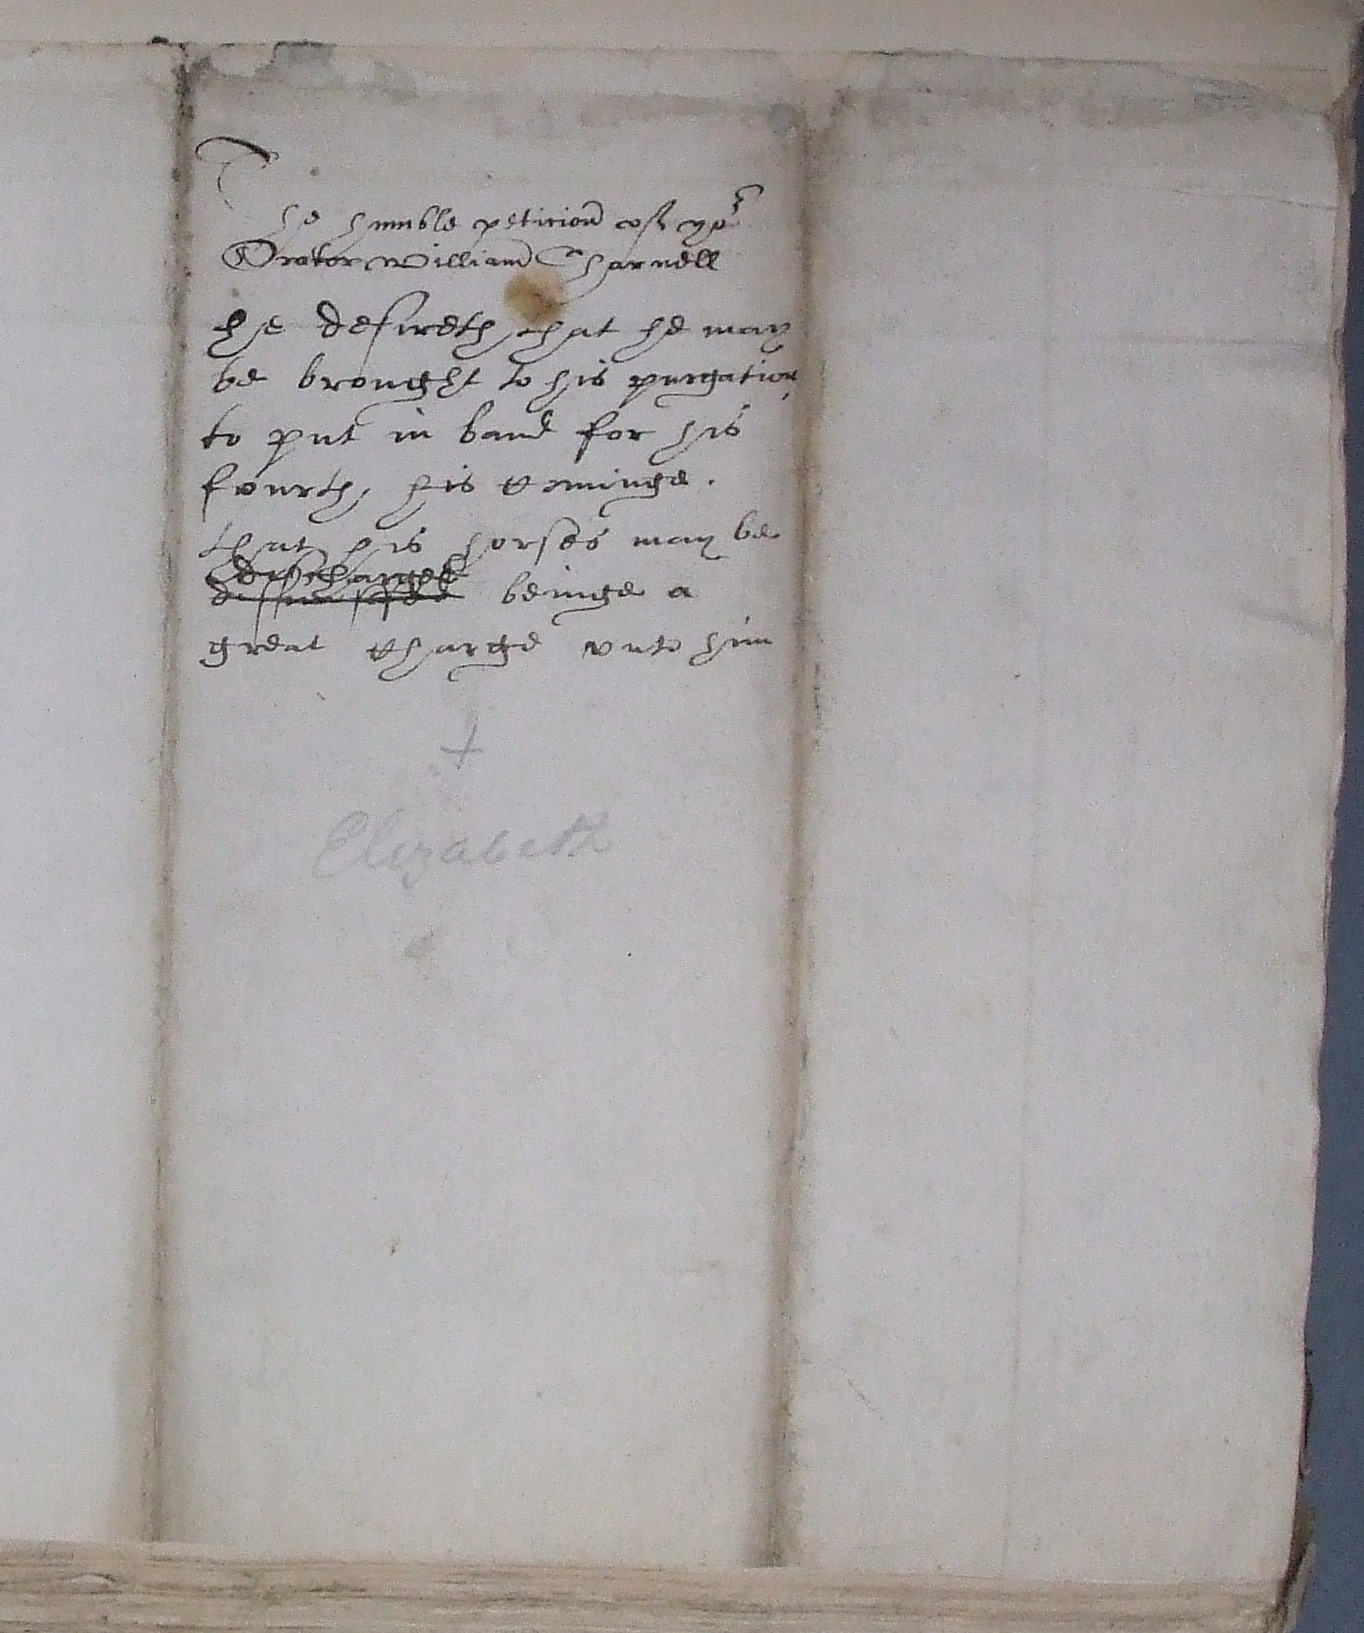 The humble petition of yor
Orator William Charnell
he desireth that he may
be brought to his purgation
to put in band for his
fourth his cominge.
that his horses may be
discharged
beinge a
great charge vnto him
+
Elizabeth